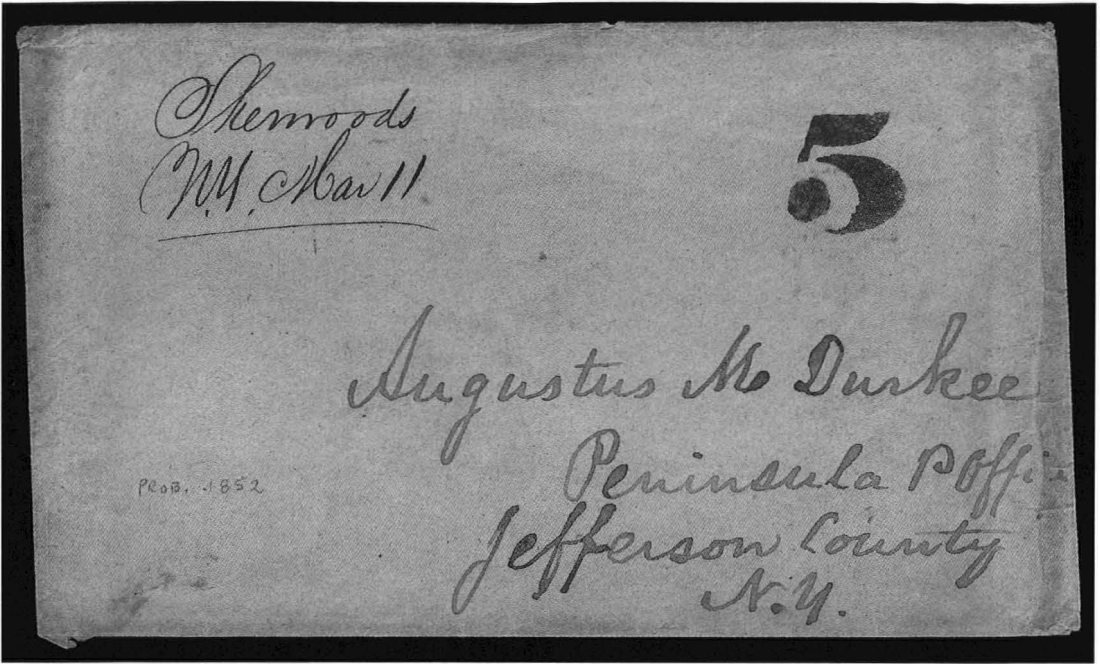 Sherwoods
N.Y. Mar 11
5
Augustus M Durkee
Peninsula P Offi
Jefferson County
N.Y.
PROB. 1852